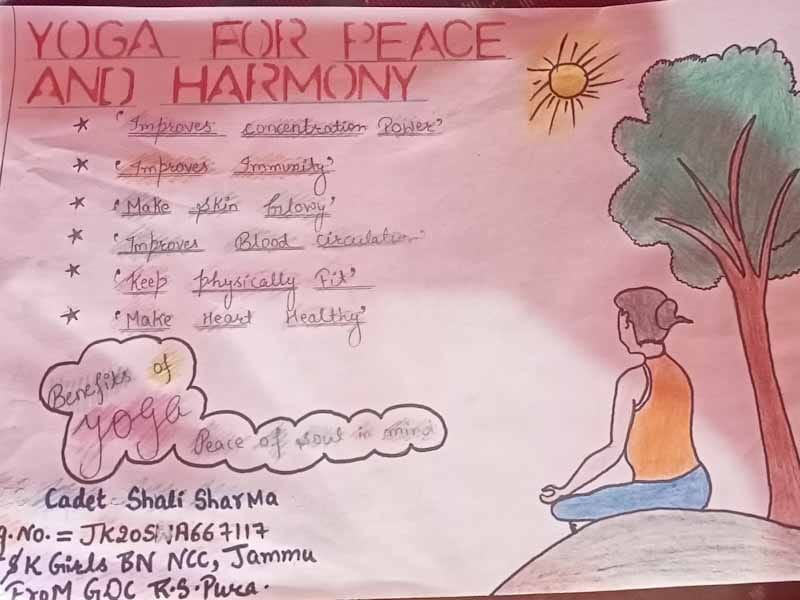 YOGA FOR PEACE
AND HARMONY
* 'Improves concentration Power'
* 'Improves Immunity'
* 'Make Skin Glowy'
* 'Improves Blood circulation'
* 'Keep physically Fit'
* 'Make Heart Healthy'
Benefits of
yoga
Peace of soul in mind
Cadet - Shali SharMa
g.No. = JK20S A667117
K Girls BN NCC, Jammu
FroM GDC R.S. Pura.